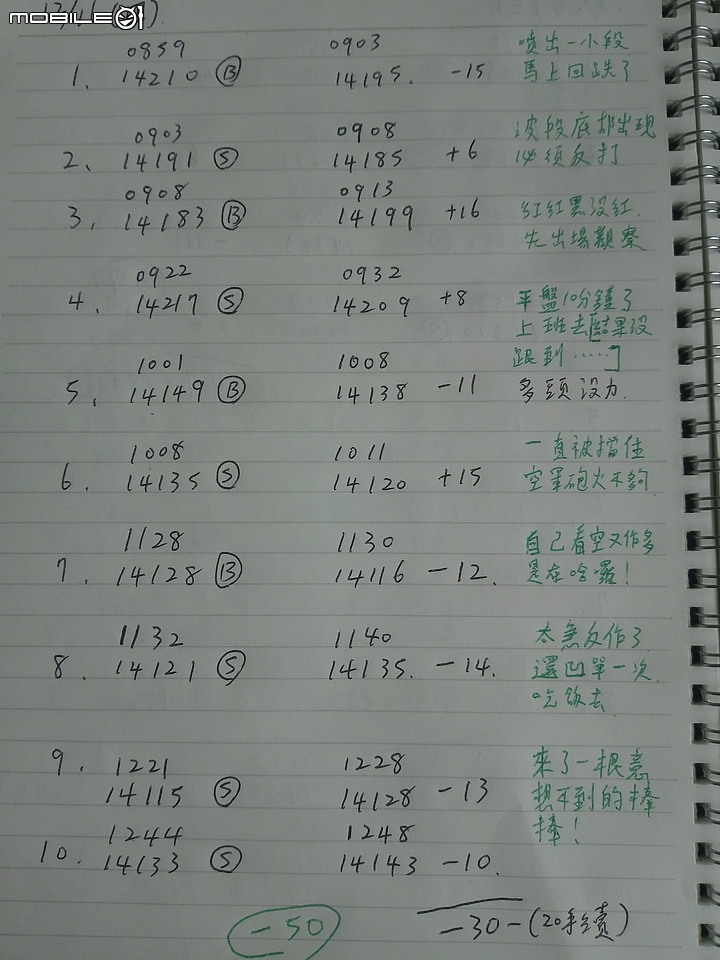 mobile01
0859 0903 噴出一小段
1. 14210 Ⓑ 14195. -15 馬上回跌了
0903 0908 波段底部出現
2、 14191 Ⓢ 14185 +6 必須反打
0908 0913
3、 14183 Ⓑ 14199 +16 紅紅黑沒紅.
先出場觀察
0922 0932
4、 14217 Ⓢ 14209 +8 平盤10分鐘了
上班去[結果沒
1001 1008 跟到……]
5、 14149 Ⓑ 14138 -11 多頭沒力.
1008 1011 一直被擋住
6. 14135 Ⓢ 14120 +15 空軍砲火不夠
1128 1130 自己看空又作多
7. 14128 Ⓑ 14116 -12. 是在哈囉!
1132 1140 太急反作了
8. 14121 Ⓢ 14135. -14. 還凹單一次.
吃飯去
9. 1221 1228 來了一根意
14115 Ⓢ 14128 -13 想不到的棒
1244 1248 棒!
10. 14133 Ⓢ 14143 -10.
-50 -30-(20手續)